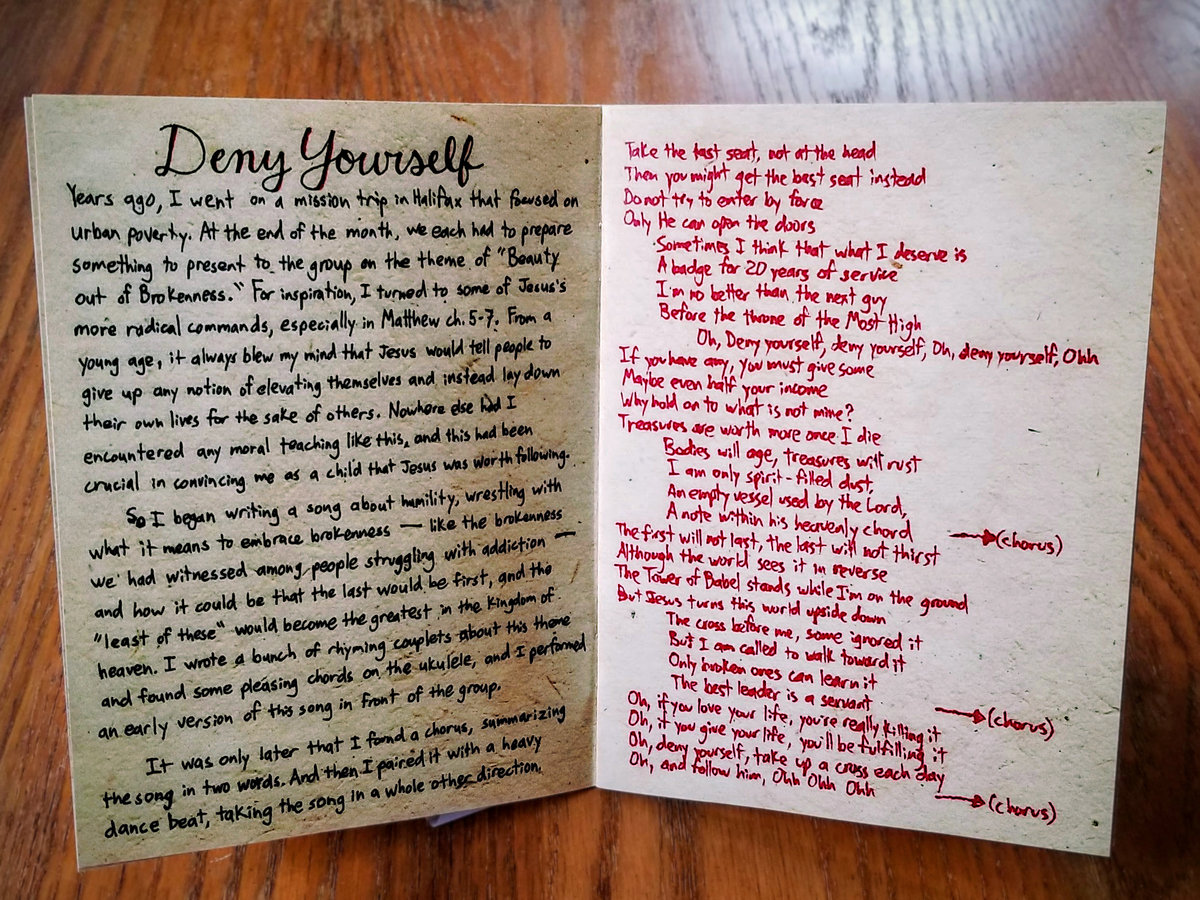 Deny Yourself
Years ago, I went on a mission trip in Halifax that focused on
urban poverty. At the end of the month, we each had to prepare
something to present to the group on the theme of "Beauty
out of Brokenness." For inspiration, I turned to some of Jesus's
more radical commands, especially in Matthew ch. 5-7. From a
young age, it always blew my mind that Jesus would tell people to
give up any notion of elevating themselves and instead lay down
their own lives for the sake of others. Nowhere else had I
encountered any moral teaching like this, and this had been
crucial in convincing me as a child that Jesus was worth following.
So I began writing a song about humility, wrestling with
what it means to embrace brokenness — like the brokenness
we had witnessed among people struggling with addiction —
and how it could be that the last would be first, and the
"least of these" would become the greatest in the kingdom of
heaven. I wrote a bunch of rhyming couplets about this theme
and found some pleasing chords on the ukulele, and I performed
an early version of this song in front of the group.
It was only later that I found a chorus, summarizing
the song in two words. And then I paired it with a heavy
dance beat, taking the song in a whole other direction.
Take the last seat, not at the head
Then you might get the best seat instead
Do not try to enter by force
Only He can open the doors
Sometimes I think that what I deserve is
A badge for 20 years of service
I'm no better than the next guy
Before the throne of the Most High
Oh, Deny yourself, deny yourself, Oh, deny yourself, Ohh
If you have any, you must give some
Maybe even half your income
Why hold on to what is not mine?
Treasures are worth more once I die
Bodies will age, treasures will rust
I am only spirit-filled dust
An empty vessel used by the Lord,
A note within his heavenly chord → (chorus)
The first will not last, the last will not thirst
Although the world sees it in reverse
The Tower of Babel stands while I'm on the ground
But Jesus turns this world upside down
The cross before me, some ignored it
But I am called to walk toward it
Only broken ones can learn it
The best leader is a servant → (chorus)
Oh, if you love your life, you're really killing it
Oh, if you give your life, you'll be fulfilling it
Oh, deny yourself, take up a cross each day
Oh, and follow him, Ohh Ohh Ohh → (chorus)